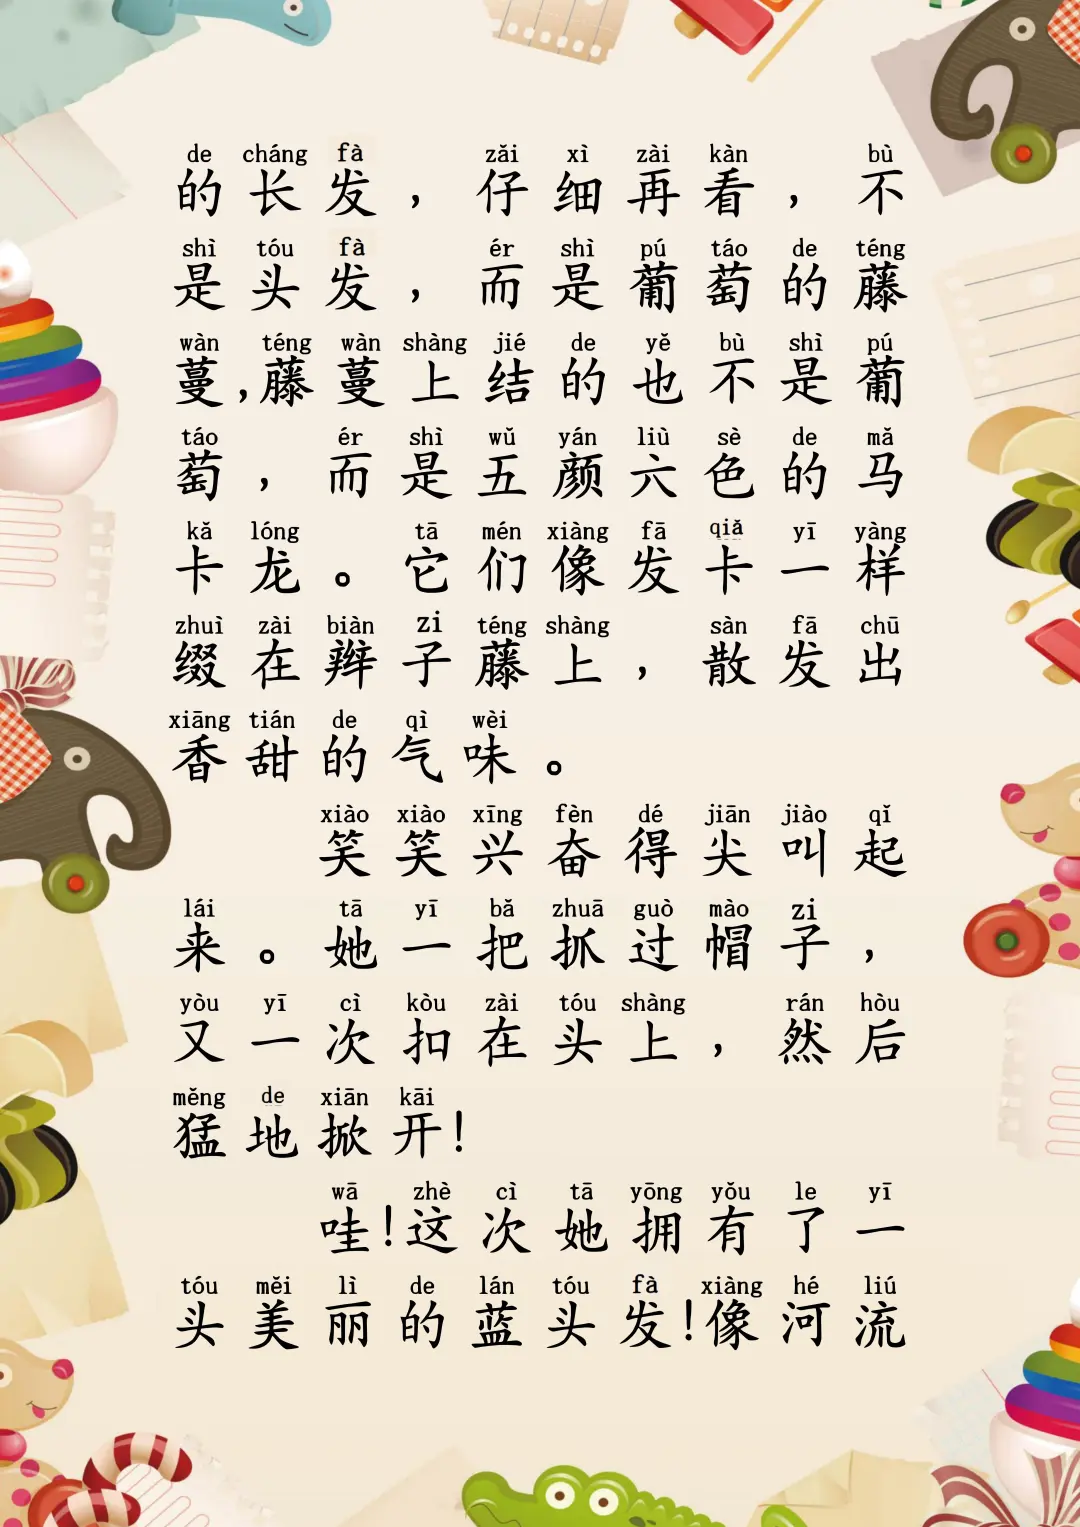 de cháng fà zǎi xì zài kàn bù
的长发，仔细再看，不
shì tóu fà ér shì pú táo de téng
是头发，而是葡萄的藤
wàn téng wàn shàng jié de yě bù shì pú
蔓，藤蔓上结的也不是葡
táo ér shì wǔ yán liù sè de mǎ
萄，而是五颜六色的马
kǎ lóng tā mén xiàng fā qiǎ yī yàng
卡龙。它们像发卡一样
zhuì zài biàn zi téng shàng sàn fā chū
缀在辫子藤上，散发出
xiāng tián de qì wèi
香甜的气味。
xiào xiào xīng fèn dé jiān jiào qǐ
笑笑兴奋得尖叫起
lái tā yī bǎ zhuā guò mào zi
来。她一把抓过帽子，
yòu yī cì kòu zài tóu shàng rán hòu
又一次扣在头上，然后
měng de xiān kāi
猛地掀开！
wā zhè cì tā yōng yǒu le yī
哇！这次她拥有了一
tóu měi lì de lán tóu fà xiàng hé liú
头美丽的蓝头发！像河流